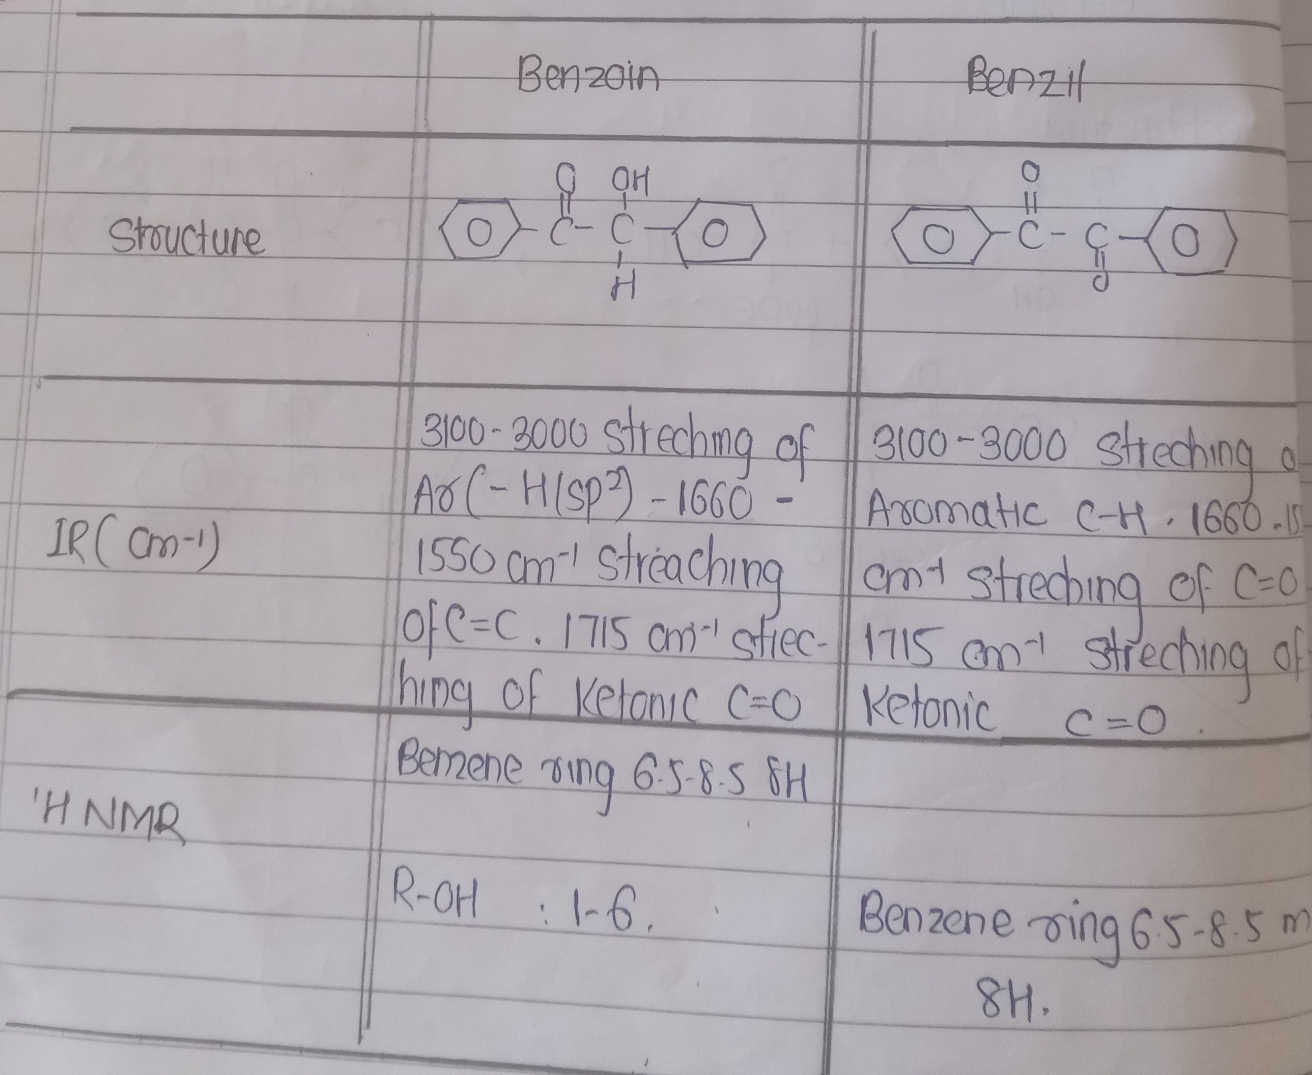 Benzoin
Benzil
Structure
O OH
C-C
H
O
C-C
O
IR(cm-1)
3100-3000 streching of
Ar C-H(sp²) -1660 -
1550 cm-1 streaching
of C=C. 1715 cm-1 strec-
hing of Ketonic C=O
3100-3000 streching o
Aromatic C-H. 1660-15
cm-1 streching of C=O
1715 cm-1 streching of
Ketonic C=O.
'H NMR
Benzene ring 6.5-8.5 8H
R-OH : 1-6.
Benzene ring 6.5-8.5 m
8H.